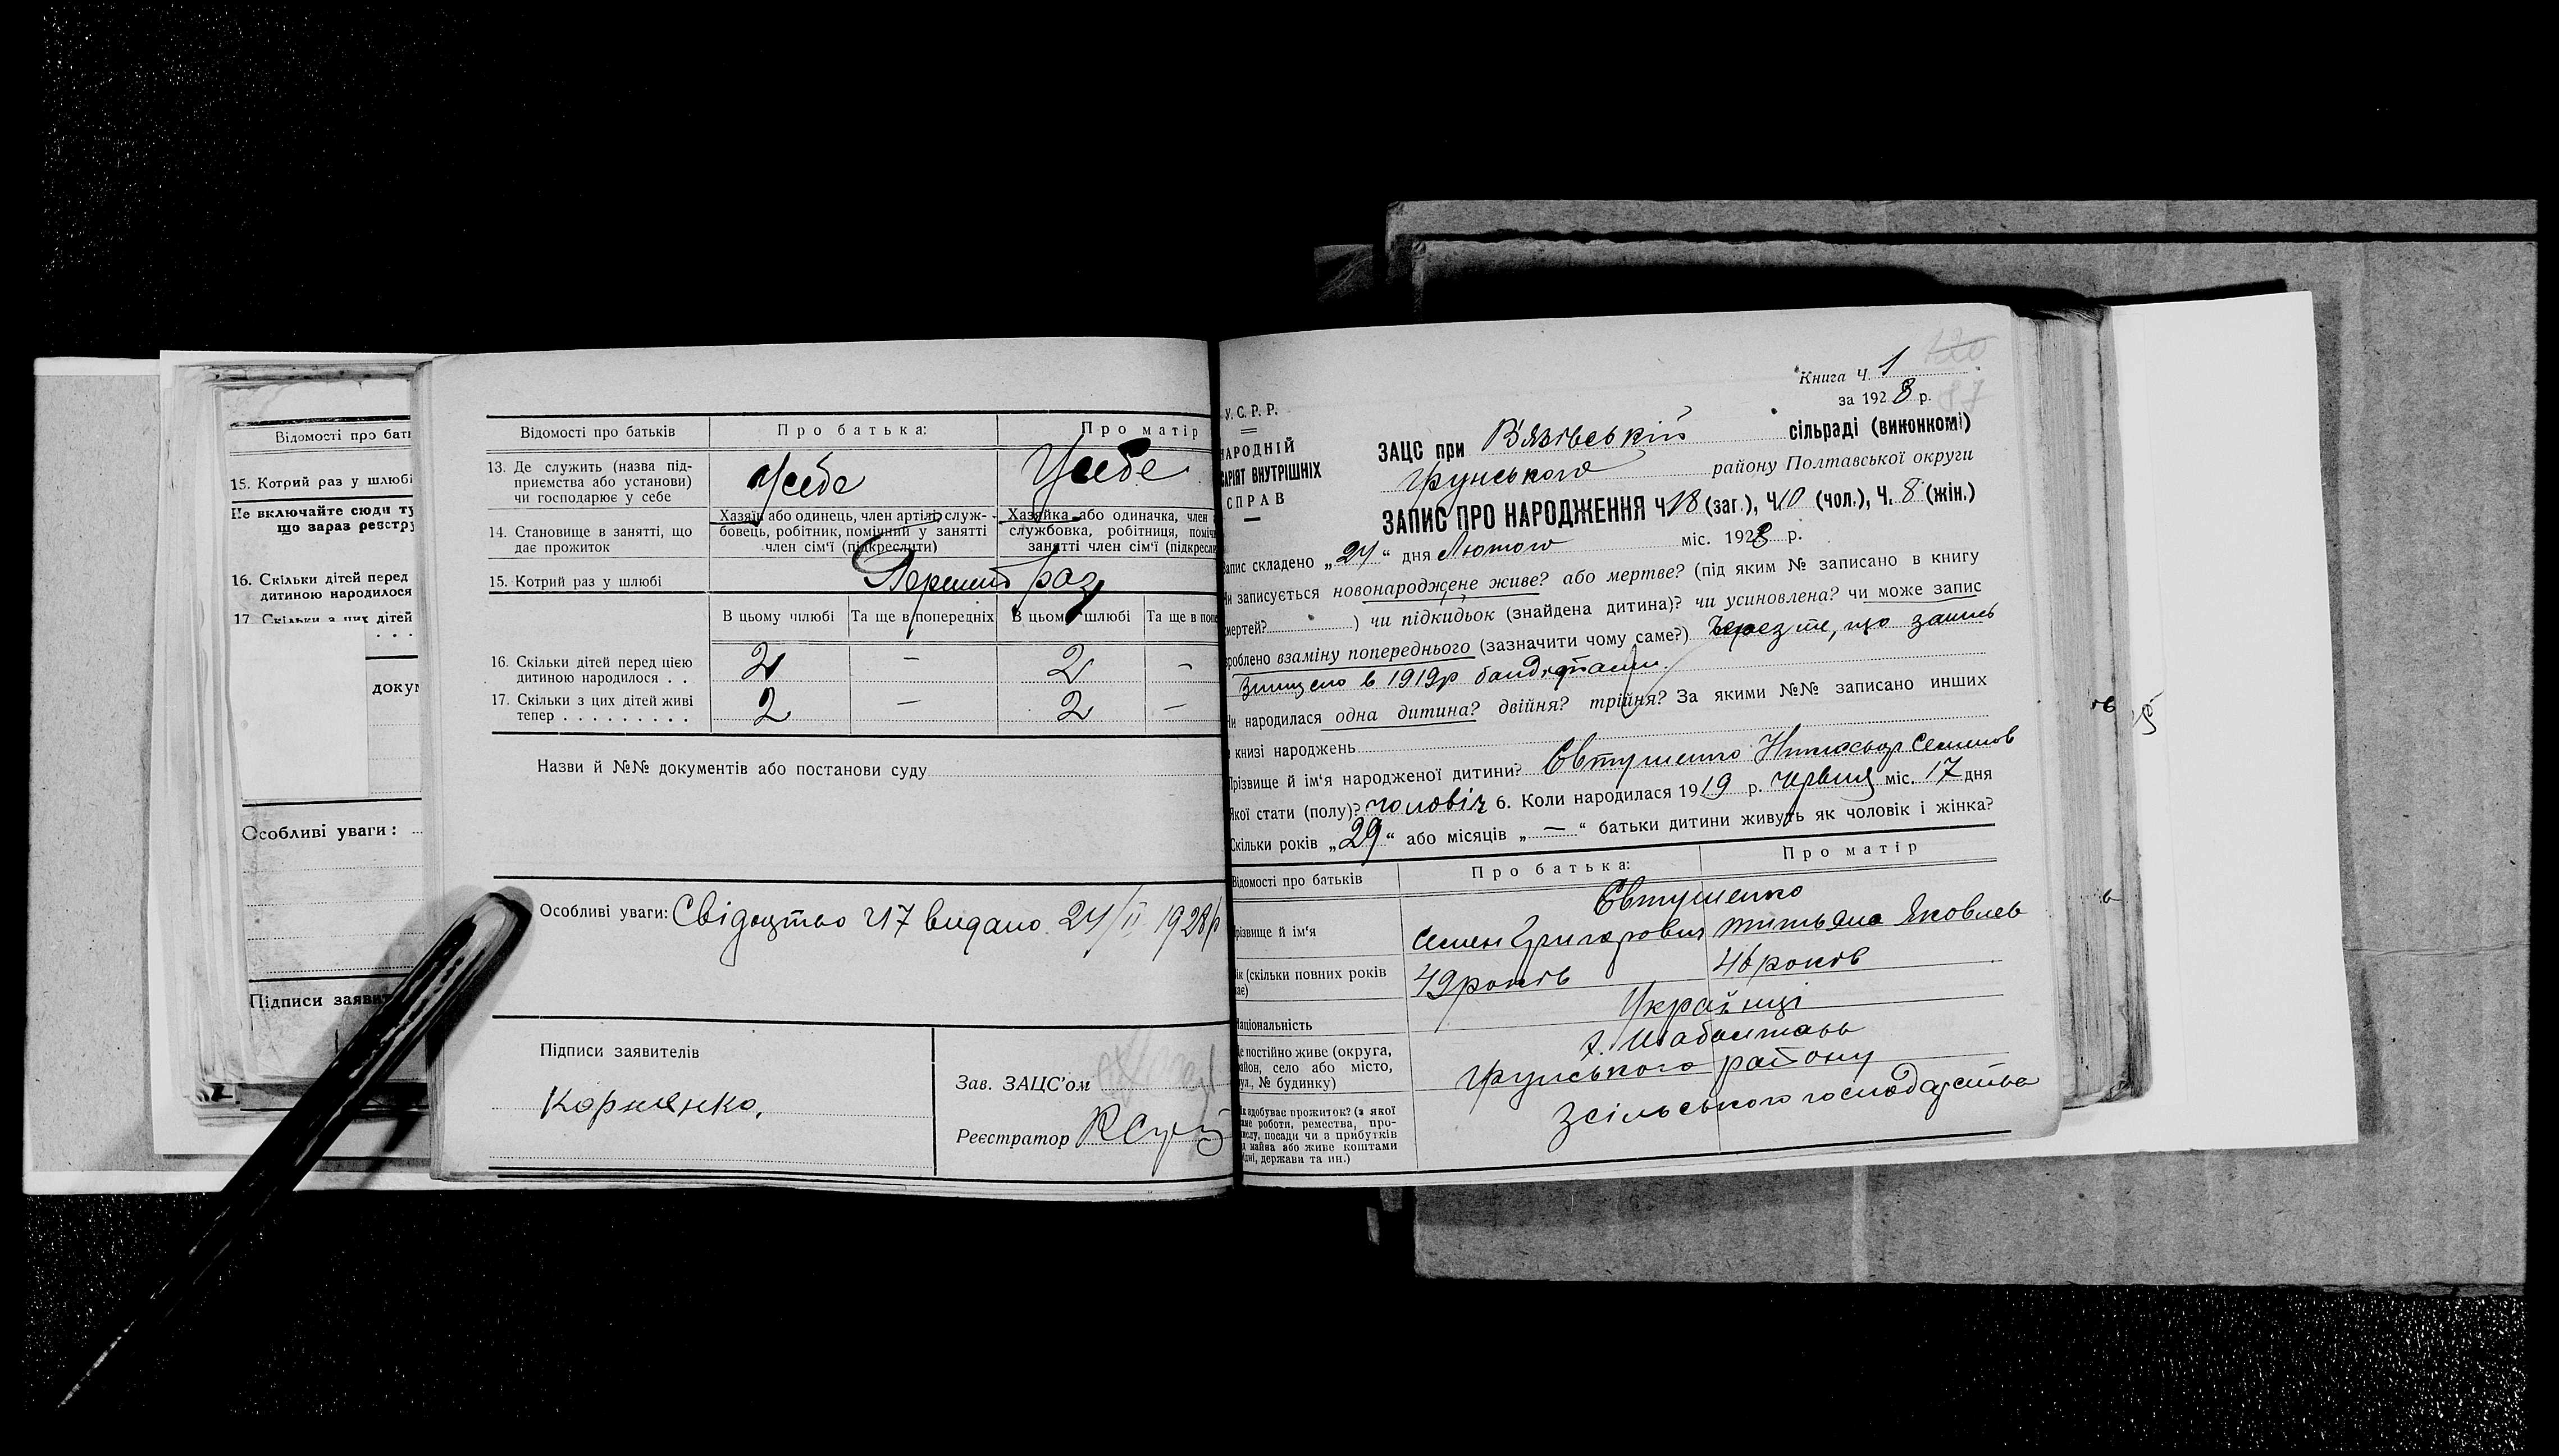 Відомості про бать
15. Котрий раз у шлюбі
Не включайте сюди ту
що зараз реєстру
16. Скільки дітей перед
дитиною народилося
17. Скільки з цих дітей
. . .
докум
Особливі уваги:
Підписи заявит
Відомості про батьків
Про батька:
Про матір
13. Де служить (назва під-
приємства або установи)
чи господарює у себе
У себе
У себе
14. Становище в занятті, що
дає прожиток
Хазяїн або одинець, член артілі, служ-
бовець, робітник, помішний у занятті
член сім'ї (підкреслити)
Хазяйка або одиначка, член
службовка, робітниця, поміч
занятті член сім'ї (підкресли
15. Котрий раз у шлюбі
Перший раз
В цьому шлюбі
Та ще в попередніх
В цьому шлюбі
Та ще в попе
16. Скільки дітей перед цією
дитиною народилося . .
2 — 2 —
17. Скільки з цих дітей живі
тепер . . . . . . . . .
2 — 2 —
Назви й №№ документів або постанови суду
Особливі уваги: Свідоцтво Ч 7 видано 24/II 1928 р
Підписи заявителів
Корнієнко.
Зав. ЗАЦС'ом
Реєстратор
120
87
Книга Ч. 1
за 1928 р.
У. С. Р. Р.
НАРОДНІЙ
САРІЯТ ВНУТРІШНІХ
СПРАВ
ЗАЦС при В'язівський сільраді (виконкомі)
Грунського району Полтавської округи
ЗАПИС ПРО НАРОДЖЕННЯ Ч 18 (заг.), Ч 10 (чол.), Ч. 8 (жін.)
Запис складено „24“ дня Лютого міс. 1928 р.
Чи записується новонароджене живе? або мертве? (під яким № записано в книгу
смертей? ) чи підкидьок (знайдена дитина)? чи усиновлена? чи може запис
зроблено взаміну попереднього (зазначити чому саме?) Через те, що запись
знищено в 1919р бандитами.
Чи народилася одна дитина? двійня? трійня? За якими №№ записано инших
в книзі народжень
Прізвище й ім'я народженої дитини? Євтушенко Никанор Семенов
Якої стати (полу)? чоловіч 6. Коли народилася 1919 р. червня міс. 17 дня
Скільки років „29“ або місяців „—“ батьки дитини живуть як чоловік і жінка?
Відомості про батьків
Про батька:
Про матір
Прізвище й ім'я
Євтушенко
Семен Григорович
Титьяна Яковлев
Вік (скільки повних років
має)
49 років
46 років
Національність
Українці
Де постійно живе (округа,
район, село або місто,
вул., № будинку)
Грунського району
Як здобуває прожиток? (з якої
саме роботи, ремества, про-
мислу, посади чи з прибутків
з майна або живе коштами
рідні, держави та ин.)
З сільського господарства